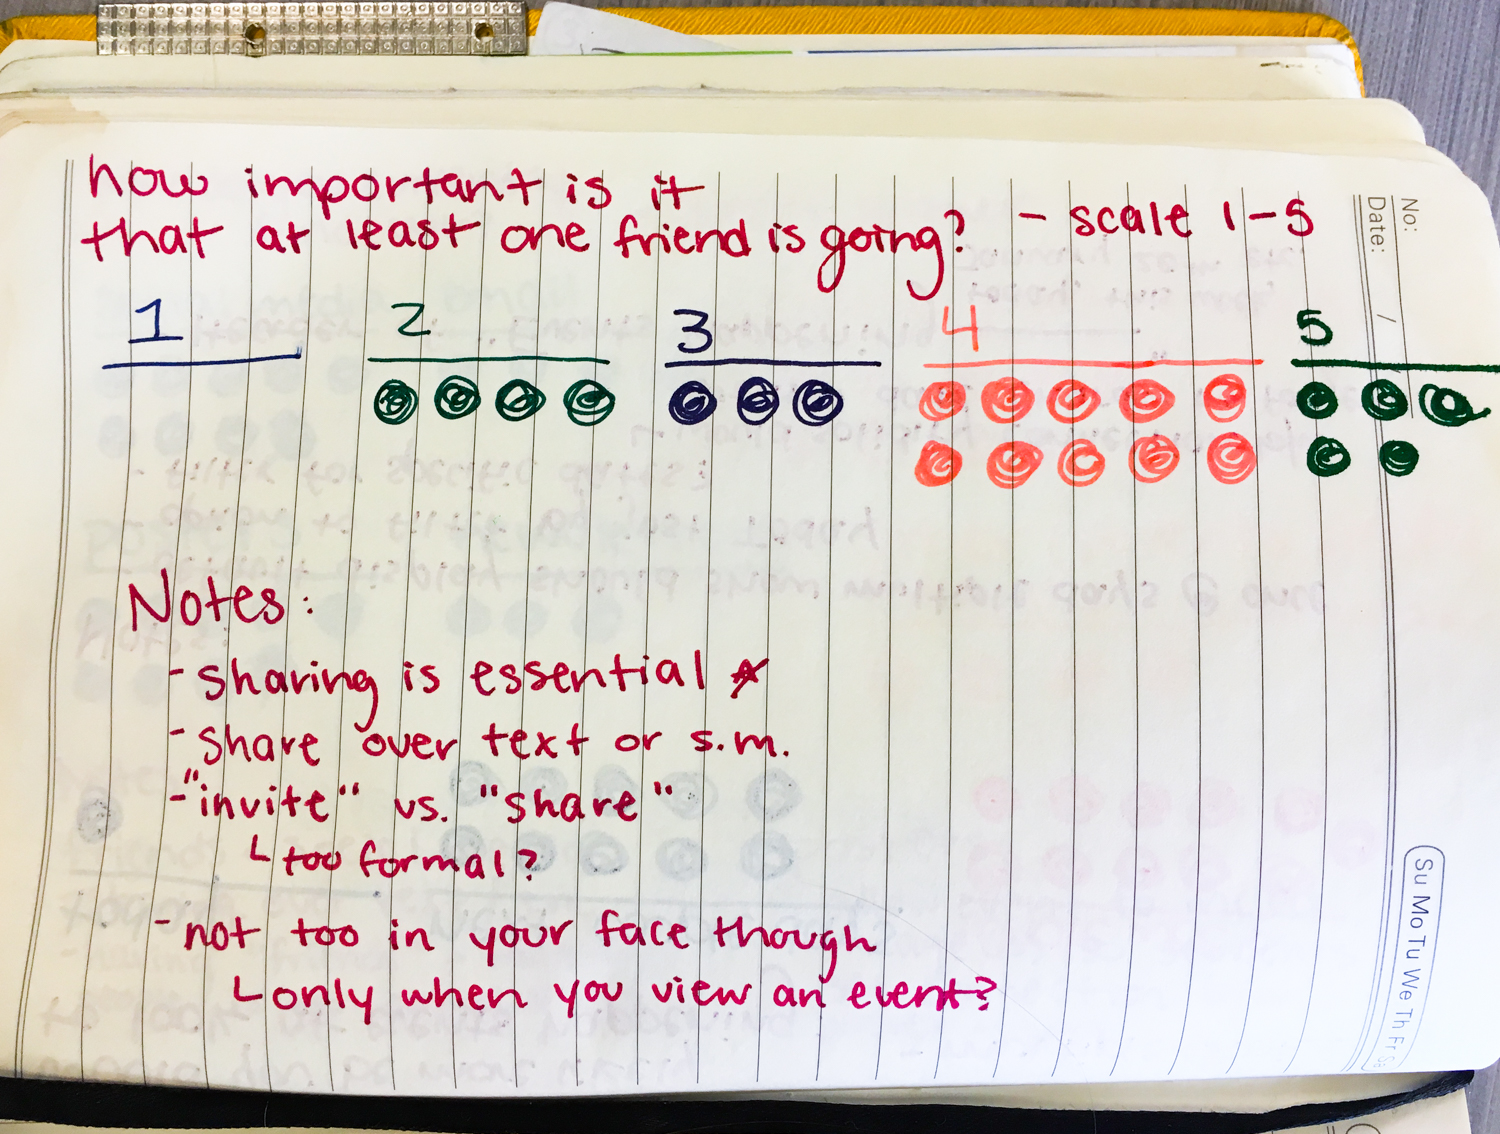 how important is it
that at least one friend is going? - scale 1-5
1 2 3 4 5
Notes:
- sharing is essential
- share over text or s.m.
- "invite" vs. "share"
too formal?
- not too in your face though
only when you view an event?
No:
Date: /
Su Mo Tu We Th Fr Sa